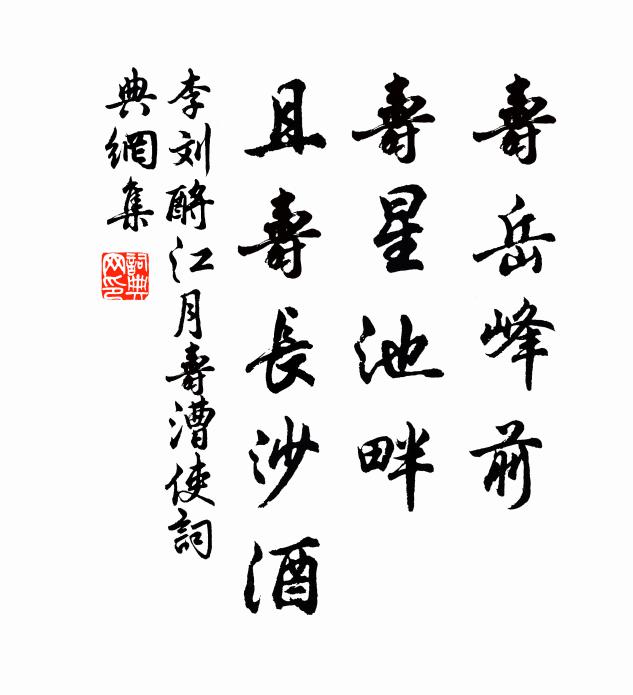 壽岳峰前
壽星池畔
且壽長沙酒
李刘酹江月壽漕使詞
典網集
詞典
网印